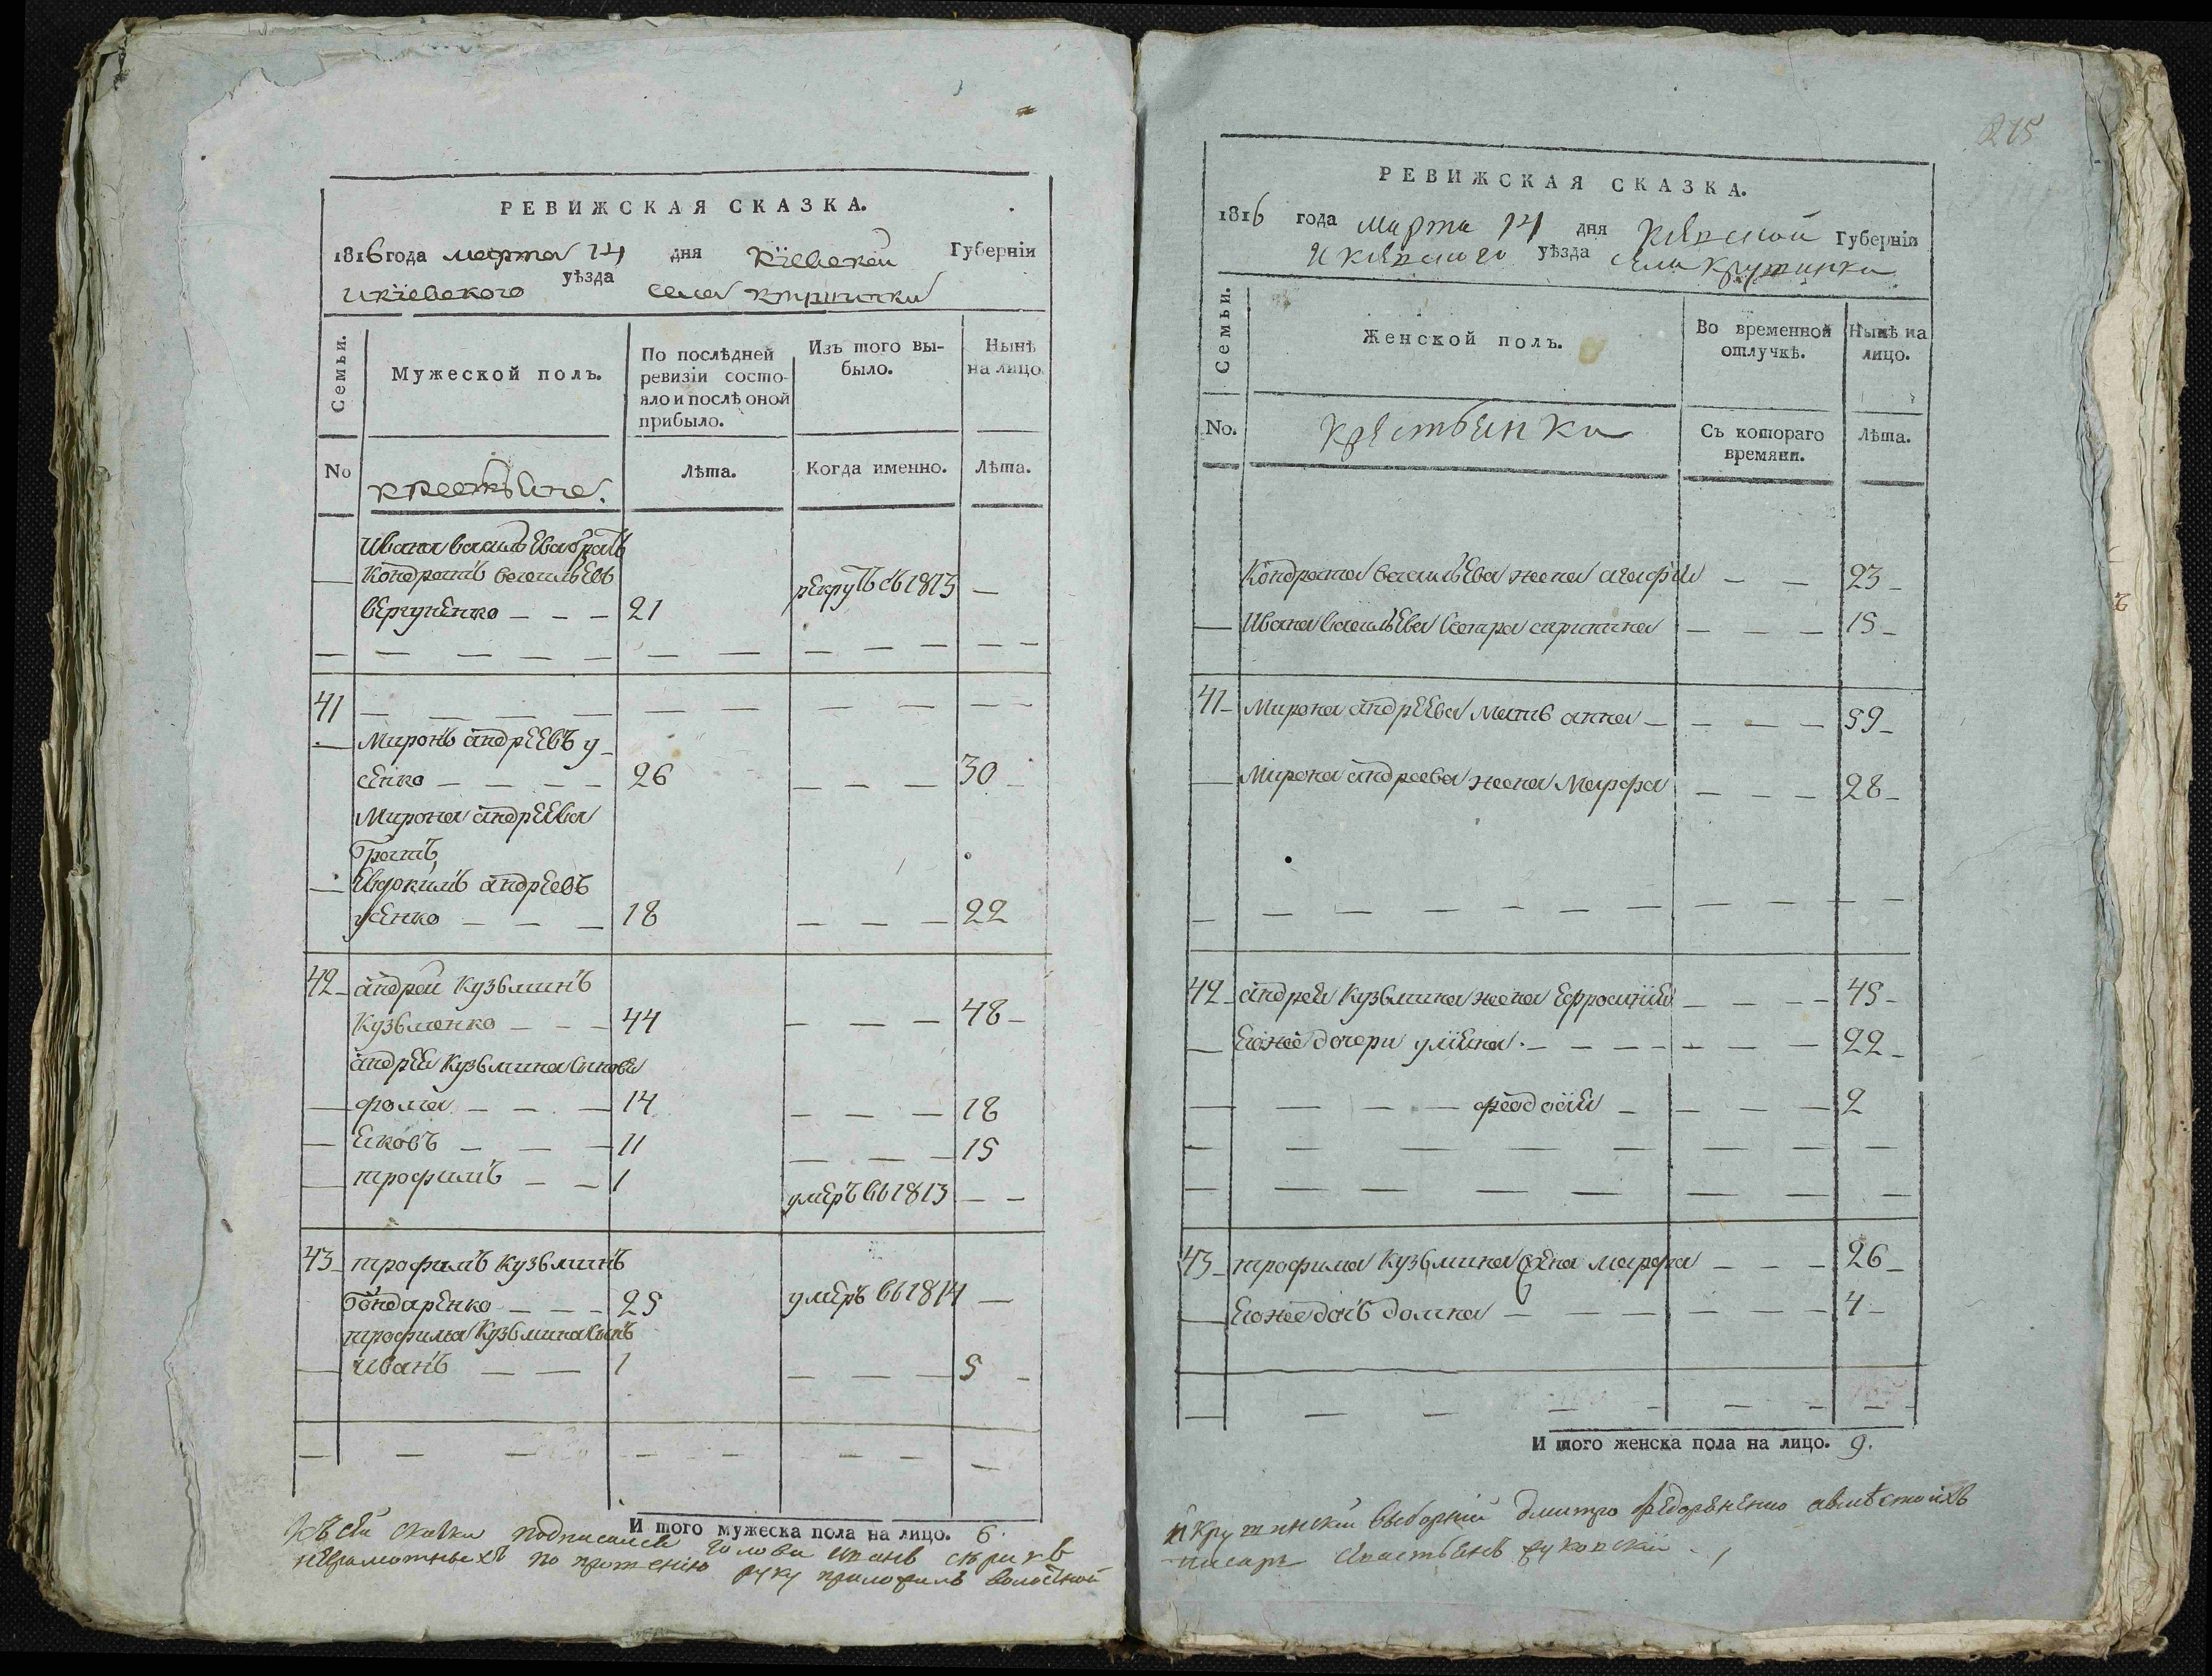 РЕВИЖСКАЯ СКАЗКА.
1816 года марта 14 дня Кіевской Губерніи
Икіевского уѣзда села
Семьи.
Мужеской полъ.
По послѣдней
ревизіи состо-
яло и послѣ оной
прибыло.
Изъ того вы-
было.
Нынѣ
на лицо.
No
крестьяне.
Лѣта.
Когда именно.
Лѣта.
Ивана васильева братъ
Кондратъ васильевъ
вергуненко — — — 21 рекрутъ съ 1813 —
41
Миронъ андреевъ у-
сенко — — — — 26 — — — 30
Мирона андреева
братъ
Евдокимъ андреевъ
усенко — — — 18 — — — 22
42 андрей Кузьминъ
Кузьменко — — — 44 — — — 48
андрея Кузьмина сыновья
фома — — — 14 — — — 18
Яковъ — — — 11 — — — 15
трофимъ — — 1 умеръ въ 1813 — —
43 трофимъ Кузьминъ
бондаренко — — — 25 умеръ въ 1814 —
трофима Кузьмина сынъ
иванъ — — 1 — — — 5
И того мужеска пола на лицо. 6.
Къ сей скаски подписался голова иванъ
неграмотныхъ по прошенію руку приложилъ волостной
275
РЕВИЖСКАЯ СКАЗКА.
1816 года марта 14 дня Кіевской Губерніи
Икіевского уѣзда села
Семьи.
Женской полъ.
Во временной
отлучкѣ.
Нынѣ на
лицо.
No.
крестьянки
Съ котораго
времяни.
Лѣта.
Кондрата васильева жена агафия — — 23
Ивана васильева сестра — — — 15
41 Мирона андреева мать анна — — — — 59
Мирона андреева жена Марфа — — — 28
42 андрея Кузьмина жена Ефросиния — — — — 45
Егоже дочери улияна — — — — 22
феодосия — — — — 2
43 трофима Кузьмина жена марфа — — — 26
Егоже дочь домна — — — — 4
И того женска пола на лицо. 9.
выборній дмитро федоренко авмѣсто ихъ
писарь